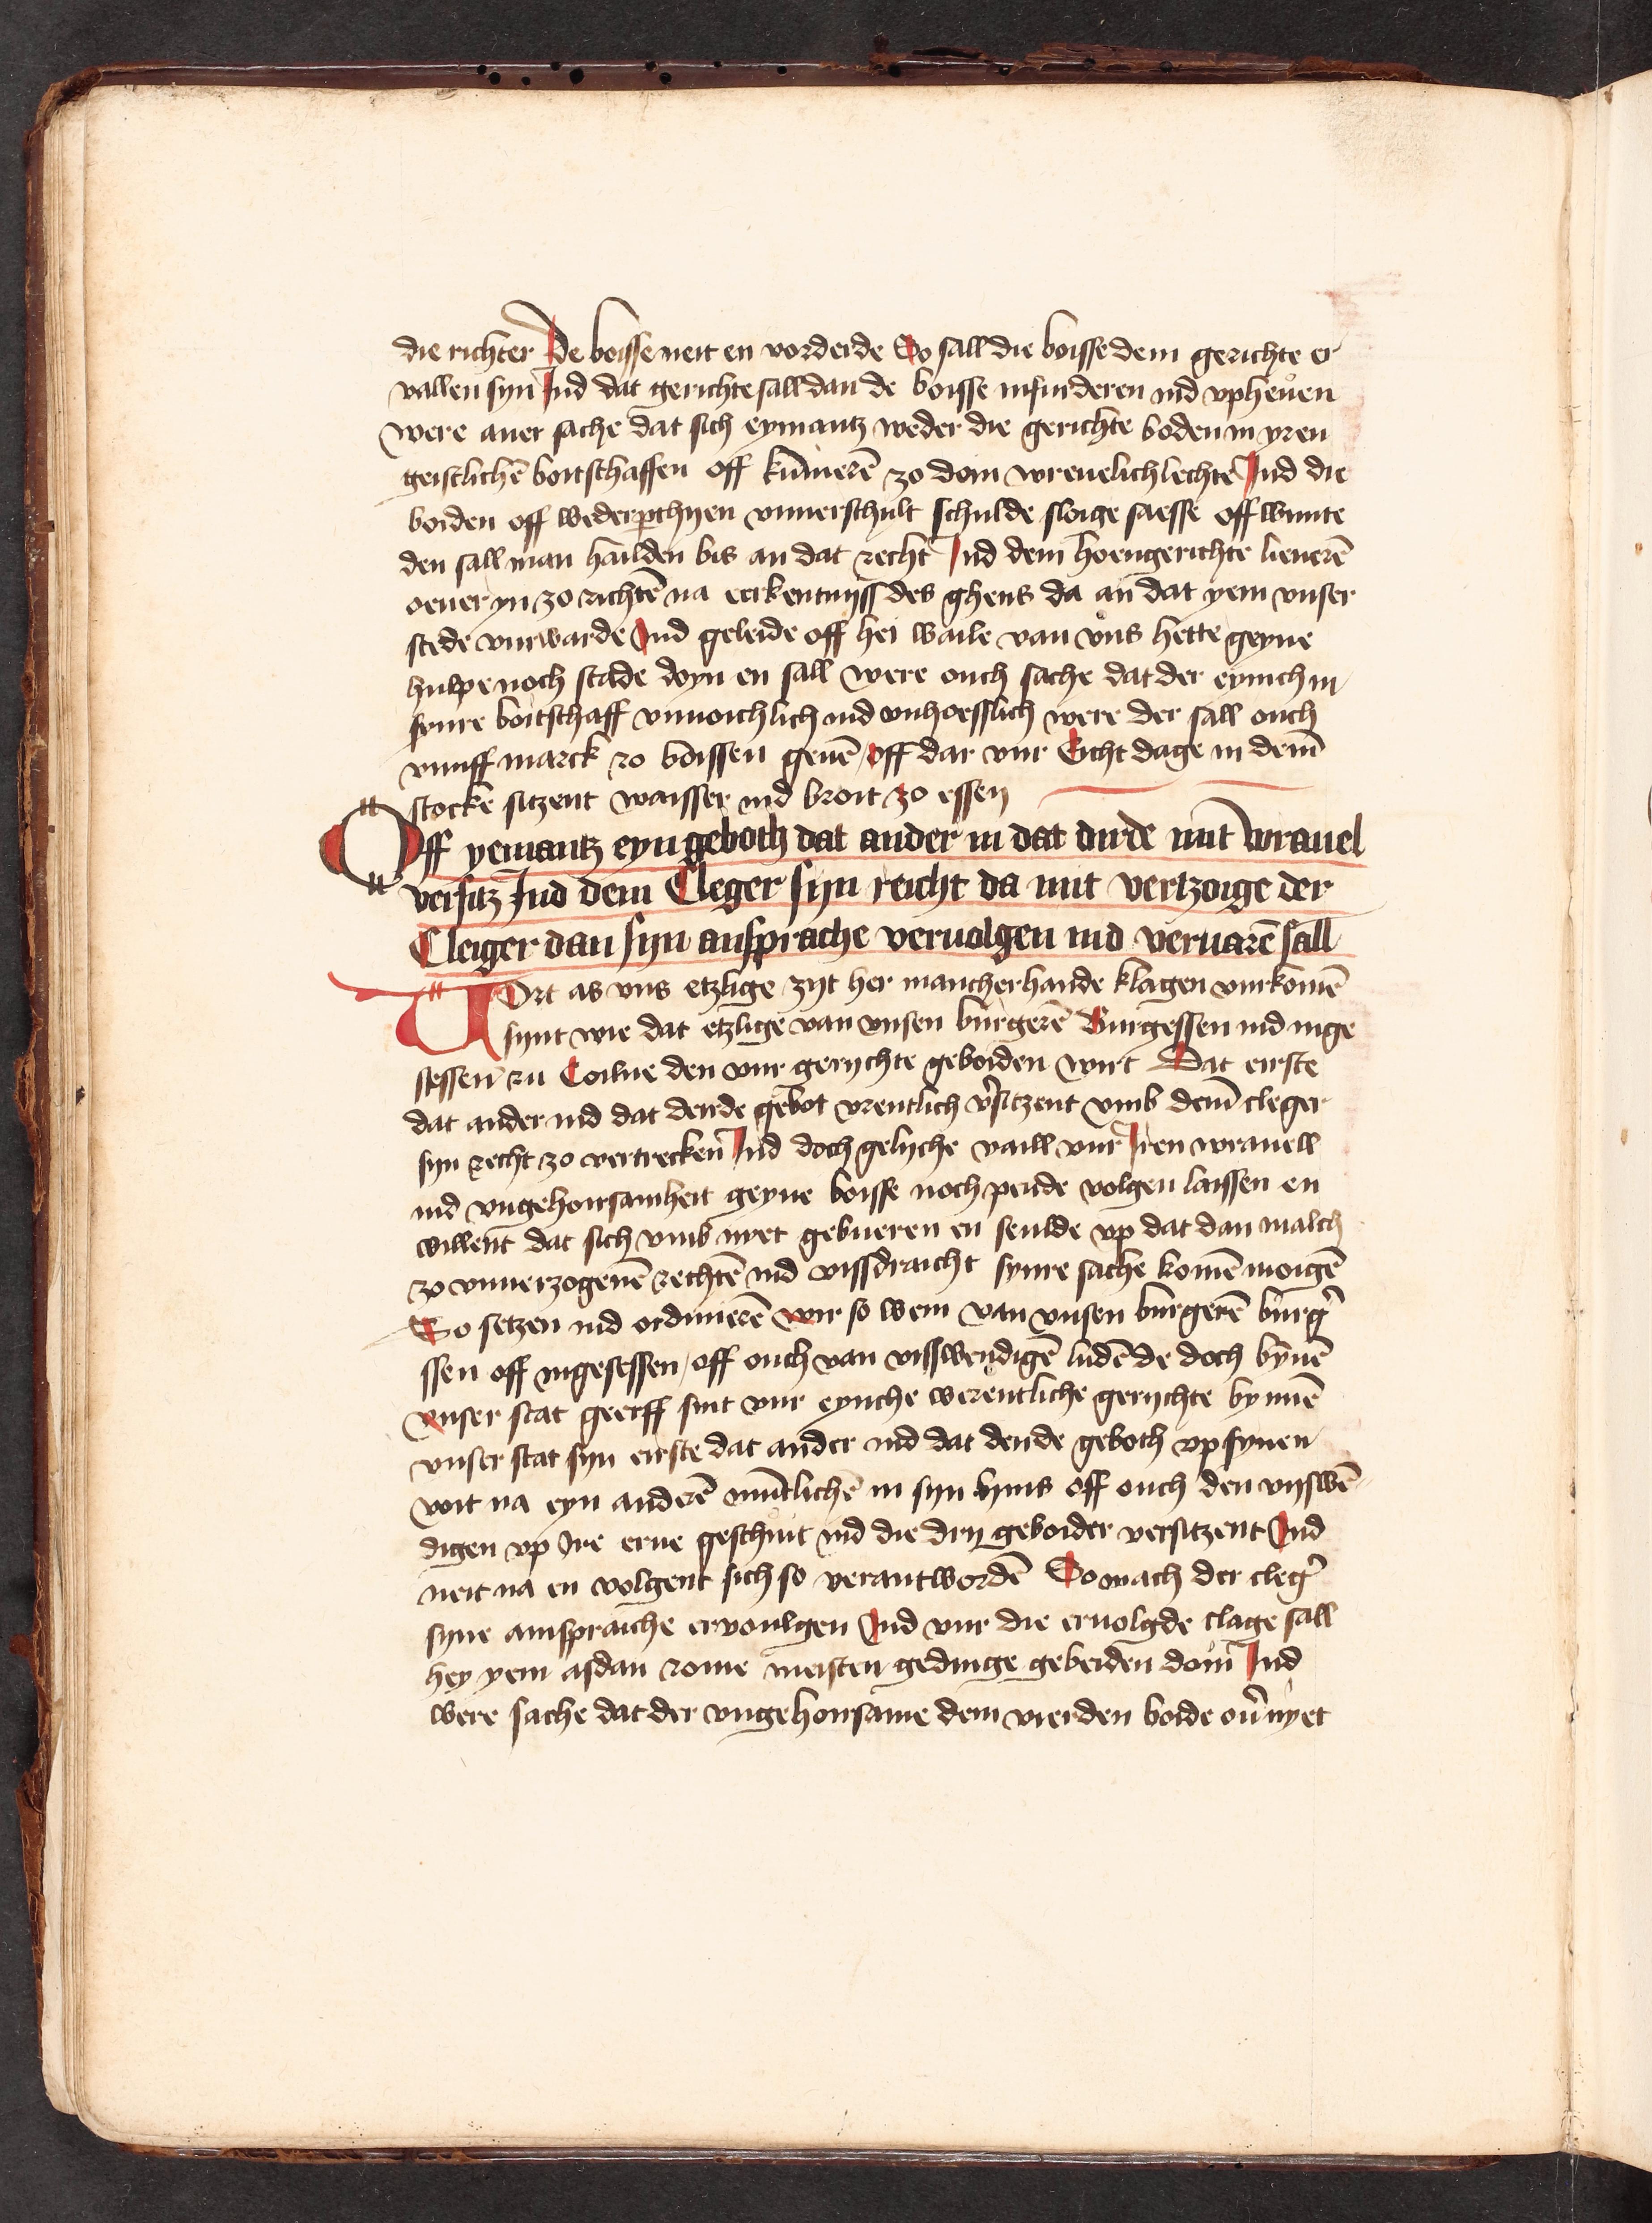 die richter De boisse neit en vorderde So sall die boisse dem gerichte er
vallen syn Ind dat gerichte sall dan de boisse inforderen ind vpheuen
were auer sache dat sich eymantz weder die gerichte boden in yren
geistlichē boitschaffen off kūmerē zo doin wreuelich lechte Ind die
boiden off wederparthyen vnuerschult schulde sloige saesse off wunte
den sall man halden bis an dat recht Ind dem hoengerichte lieuerē
oeuer yn zo richtē na erkentnyss des ghens da an dat yem vnser
stede vurwarde Ind geleide off hei waile van vns hette geyne
hulpe noch stade doyn en sall were ouch sache dat der eynich in
synre boitschaff vnuoichlich ind vnhoesslich were der sall ouch
vunff marck zo boissen geuē / off dar vur Eicht dage in dem
stocke sitzent waisser ind broit zo essen
Off yemantz eyn geboth dat ander in dat dirde mit wrauel
versitz Ind dem Cleger syn reicht da mit vertzoige der
Cleiger dan syn ansprache veruolgen ind veruarē sall
Vort as vns etzlige zyt her mancherhande klagen vurkomē
synt wie dat etzlige van vnsen burgerē Burgessen ind inge
sessen zu Coilne den vur gerychte geboiden wirt Dat eirste
dat ander ind dat derde gebot vrentlich v'sitzent vmb dem cleger
syn recht zo vertrecken Ind doch gelyche vaill vur Iren wrauell
ind vngehoirsamheit geyne boisse noch pende volgen laissen en
willent dat sich vmb nyet gebueren en seulde vp dat dan malch
zo vnuerzogenē rechtē ind vissdraicht synre sache komē moigē
So setzen ind ordinerē wir so wem van vnsen burgerē burg'
ssen off ingesessen / off ouch van visswendigē ludē de doch bynnē
vnser stat geerff sint vur eynche werentliche gerychte bynnē
vnser stat syn eirste dat ander ind dat derde geboth vp synen
voit na eyn anderē muntlichē in syn hyuis off ouch den vyswē
digen vp Ire erue geschuit ind die dry geboider versitzent Ind
neit na en volgent sich so verantwordē So mach der cleg'
syne anspraiche ervoulgen Ind vur die eruolgde clage sall
hey yem asdan zome meisten gedinge gebeiden doin Ind
were sache dat der vngehoirsame dem vierden boide ou' nyet